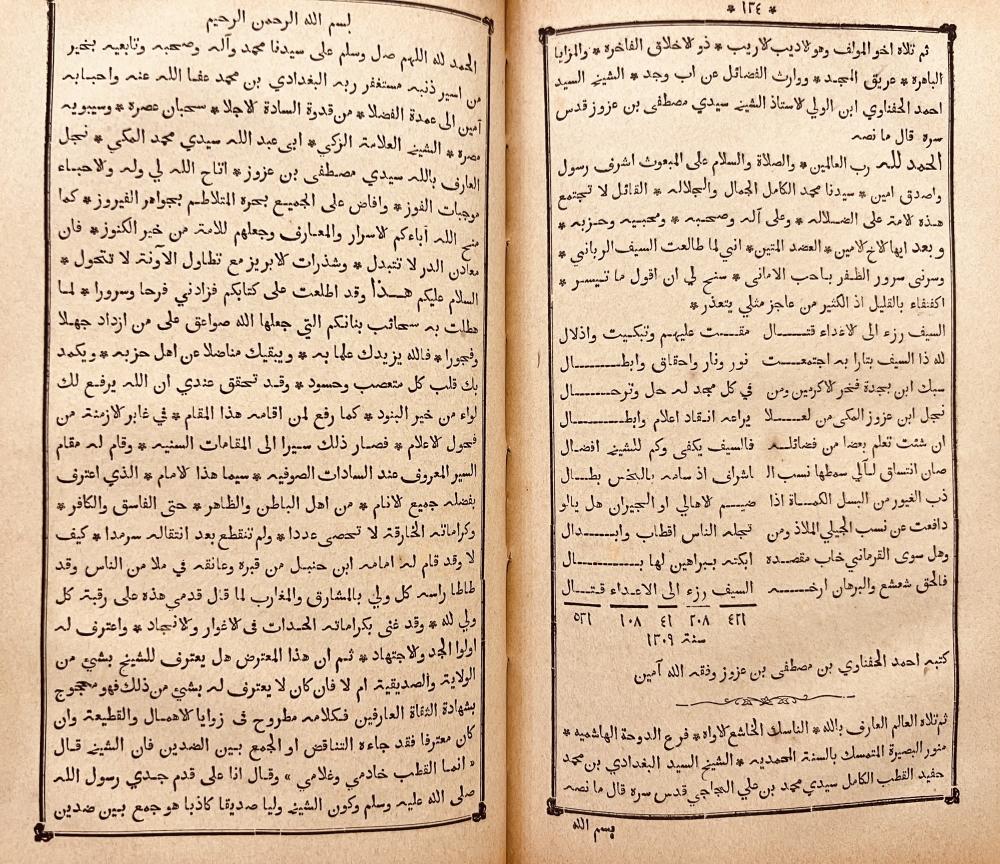 * ١٣٤ *
ثم تلاه اخو المولف وهو لاديب لاريب * ذو لاخلاق الفاخرة * والمزايا
الباهرة * عريق المجد * ووارث الفضائل عن اب وجد * الشيخ السيد
احمد الحفناوي ابن الولي لاستاذ الشيخ سيدي مصطفى بن عزوز قدس
سره قال ما نصه
الحمد لله رب العالمين * والصلاة والسلام على المبعوث اشرف رسول
واصدق امين * سيدنا محمد الكامل الجمال والجلاله * القائل لا تجتمع
هذه لامة على الضلاله * وعلى آله وصحبه * ومحبيه وحزبه *
وبعد ايها لاخ لامين * العضد المتين * اني لما طالعت السيف الرباني *
وسرني سرور الظفر باحب الاماني * سنح لي ان اقول ما تيسر *
اكتفاء بالقليل اذ الكثير من عاجز مثلي يتعذر *
السيف رزء الى لاعداء قتال مقت عليهم وتبكيت واذلال
لله ذا السيف بتارا به اجتمعت نور ونار واحقاق وابطال
سبك ابن بجدة فخر لاكرمين ومن في كل مجد له حل وترحال
نجل ابن عزوز المكى من لعلا يراعه انقاد اعلام وابطال
ان شئت تعلم بعضا من فضائله فالسيف يكفى وكم للشيخ افضال
صان انتساق لآلي سمطها نسب الـ اشراف اذ سامه بالبخس بطال
ذب الغيور من البسل الكماة اذا ضيم لاهالي او الجيران هل يالو
دافعت عن نسب الجيلي الملاذ ومن تجله الناس اقطاب وابدال
وهل سوى القرماني خاب مقصده ابكته ببراهين لها بال
فالحق شعشع والبرهان ارخه السيف رزء الى الاعداء قتال
٤٢١ ٢٠٨ ٤١ ١٠٨ ٥٣١
سنة ١٣٠٩
كتبه احمد الحفناوي بن مصطفى بن عزوز وفقه الله آمين
ثم تلاه العالم العارف بالله * الناسك الخاشع لاواه * فرع الدوحة الهاشميه *
منور البصيرة المتمسك بالسنة المحمديه * الشيخ السيد البغدادي بن محمد
حفيد القطب الكامل سيدي محمد بن علي المجاجي قدس سره قال ما نصه
بسم الله
بسم الله الرحمن الرحيم
الحمد لله اللهم صل وسلم على سيدنا محمد وآله وصحبه وتابعيه بخير
من اسير ذنبه مستغفر ربه البغدادي بن محمد عفا الله عنه واحبابه
آمين الى عمدة الفضلا * من قدوة السادة لاجلا * سحبان عصره * وسيبويه
مصره * الشيخ العلامة الزكي * ابى عبد الله سيدي محمد المكي * نجل
العارف بالله سيدي مصطفى بن عزوز * اتاح الله لي وله ولاحباء
موجبات الفوز * وافاض على الجميع بحره المتلاطم بجواهر الفيروز * كما
منح الله آباءكم لاسرار والمعارف وجعلهم للامة من خير الكنوز * فان
معادن الدر لا تتبدل * وشذرات لابريز مع تطاول الآونة لا تتحول *
السلام عليكم هذا وقد اطلعت على كتابكم فزادني فرحا وسرورا * لما
هطلت به سحائب بنانكم التي جعلها الله صواعق على من ازداد جهلا
وفجورا * فالله يزيدك علما به * ويبقيك مناضلا عن اهل حزبه * ويكمد
بك قلب كل متعصب وحسود * وقد تحقق عندي ان الله يرفع لك
لواء من خير البنود * كما رفع لمن اقامه هذا المقام * في غابر لازمنة من
فحول لاعلام * فصار ذلك سيرا الى المقامات السنيه * وقام له مقام
السير المعروف عند السادات الصوفيه * سيما هذا لامام * الذي اعترف
بفضله جميع لانام * من اهل الباطن والظاهر * حتى الفاسق والكافر *
وكراماته الخارقة لا تحصى عددا * ولم تنقطع بعد انتقاله سرمدا * كيف
لا وقد قام له امامه ابن حنبل من قبره وعانقه في ملا من الناس وقد
طاطا راسه كل ولي بالمشارق والمغارب لما قال قدمي هذه على رقبة كل
ولي لله * وقد غنى بكراماته الحدات فى لاغوار ولانجاد * واعترف له
اولوا الجد ولاجتهاد * ثم ان هذا المعترض هل يعترف للشيخ بشئ من
الولاية والصديقية ام لا فان كان لا يعترف له بشئ من ذلك فهو محجوج
بشهادة الثقاة العارفين فكلامه مطروح فى زوايا لاهمال والقطيعة وان
كان معترفا فقد جاءه التناقض او الجمع بين الضدين فان الشيخ قال
« انما القطب خادمي وغلامي » وقال انا على قدم جدي رسول الله
صلى الله عليه وسلم وكون الشيخ وليا صديقا كاذبا هو جمع بين ضدين